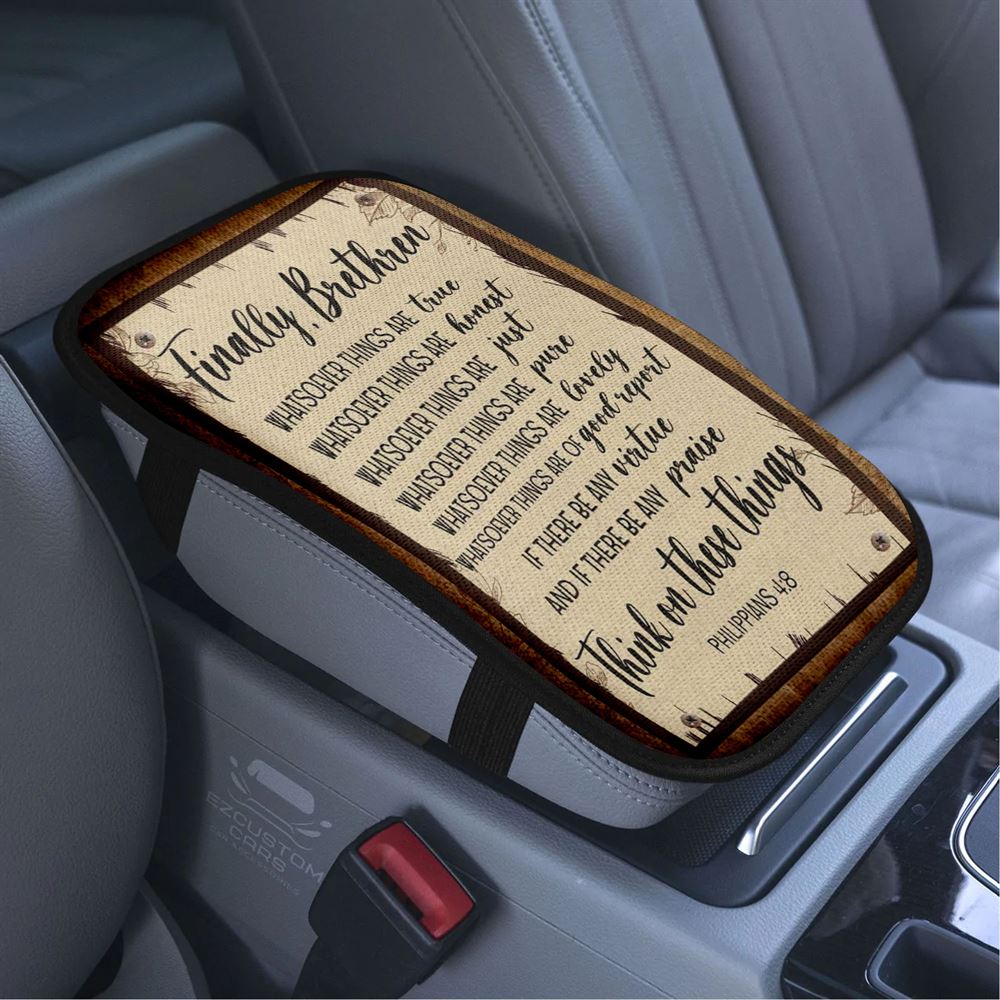 Finally, Brethren
WHATSOEVER THINGS ARE true
WHATSOEVER THINGS ARE honest
WHATSOEVER THINGS ARE just
WHATSOEVER THINGS ARE pure
WHATSOEVER THINGS ARE lovely
WHATSOEVER THINGS ARE OF good report
IF THERE BE ANY virtue
AND IF THERE BE ANY praise
Think on these things
PHILIPPIANS 4:8
EZCUSTOM
CARS